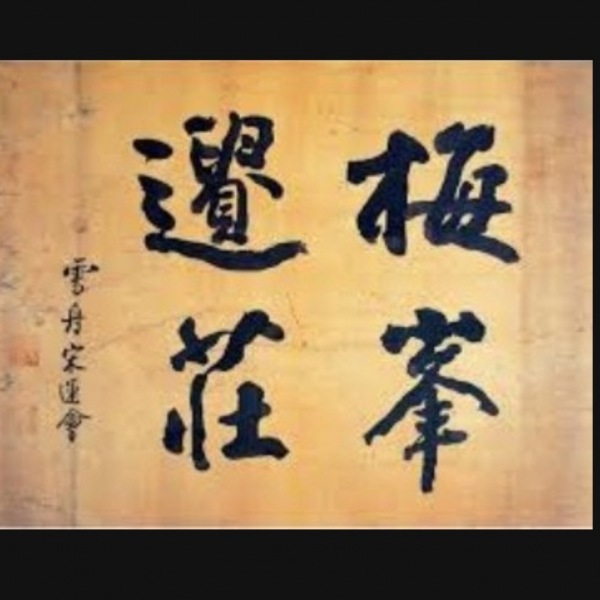 梅峯
遺莊
雪舟宋運會